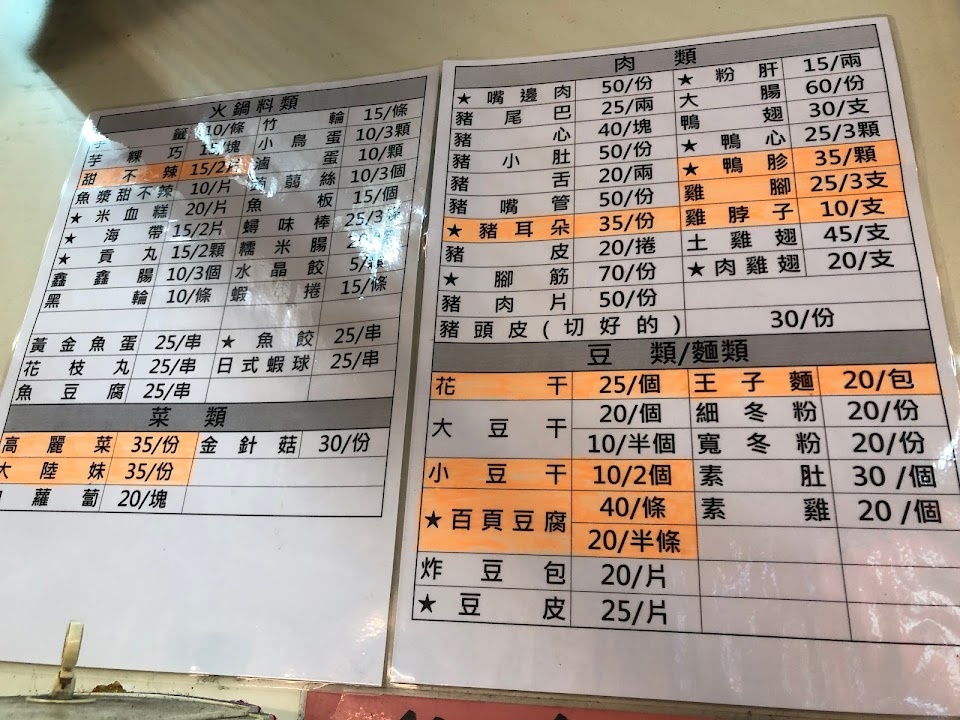 火鍋料類
10/條 竹輪 15/條
芋粿巧 15/塊 小鳥蛋 10/3顆
甜不辣 15/2片 滷蛋 10/顆
魚漿甜不辣 10/片 蒟蒻絲 10/3個
★米血糕 20/片 魚板 15/個
★海帶 15/2片 蟳味棒
★貢丸 15/2顆 糯米腸
鑫鑫腸 10/3個 水晶餃
黑輪 10/條 蝦捲 15/條
黃金魚蛋 25/串 ★魚餃 25/串
花枝丸 25/串 日式蝦球 25/串
魚豆腐 25/串
菜類
高麗菜 35/份 金針菇 30/份
大陸妹 35/份
蘿蔔 20/塊
肉類
★嘴邊肉 50/份 ★粉肝 15/兩
豬尾巴 25/兩 大腸 60/份
豬心 40/塊 鴨翅 30/支
豬小肚 50/份 ★鴨心 25/3顆
豬舌 20/兩 ★鴨胗 35/顆
豬嘴管 50/份 雞腳 25/3支
★豬耳朵 35/份 雞脖子 10/支
豬皮 20/捲 土雞翅 45/支
★腳筋 70/份 ★肉雞翅 20/支
豬肉片 50/份
豬頭皮(切好的) 30/份
豆類/麵類
花干 25/個 王子麵 20/包
大豆干 20/個 細冬粉 20/份
10/半個 寬冬粉 20/份
小豆干 10/2個 素肚 30/個
★百頁豆腐 40/條 素雞 20/個
20/半條
炸豆包 20/片
★豆皮 25/片